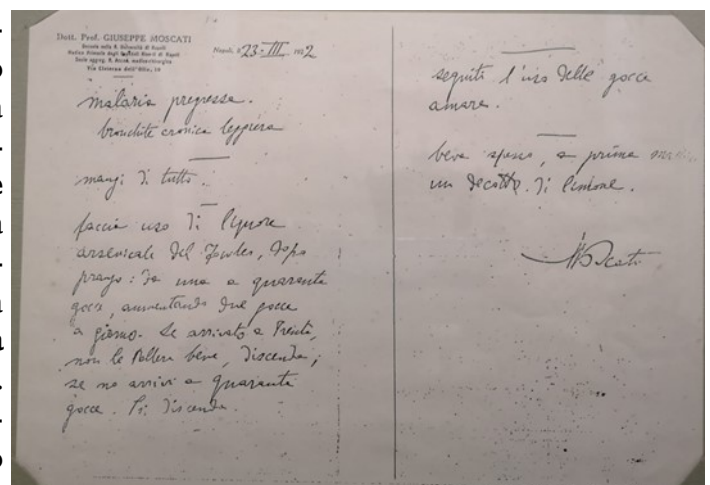 Dott. Prof. GIUSEPPE MOSCATI
Via Cisterna dell'Olio, 10
Napoli, il 23-III-1922
malaria pregressa.
bronchite cronica leggiera
mangi di tutto.
faccia uso di liquore
arsenicale del Fowler, dopo
pranzo: da una a quaranta
gocce, aumentando due gocce
a giorno. Se arrivato a trenta,
non le tolleri bene, discenda;
se no arrivi a quaranta
gocce. Poi discenda.
seguiti l'uso delle gocce
amare.
beva spesso, a prima
un decotto di limone.
Moscati